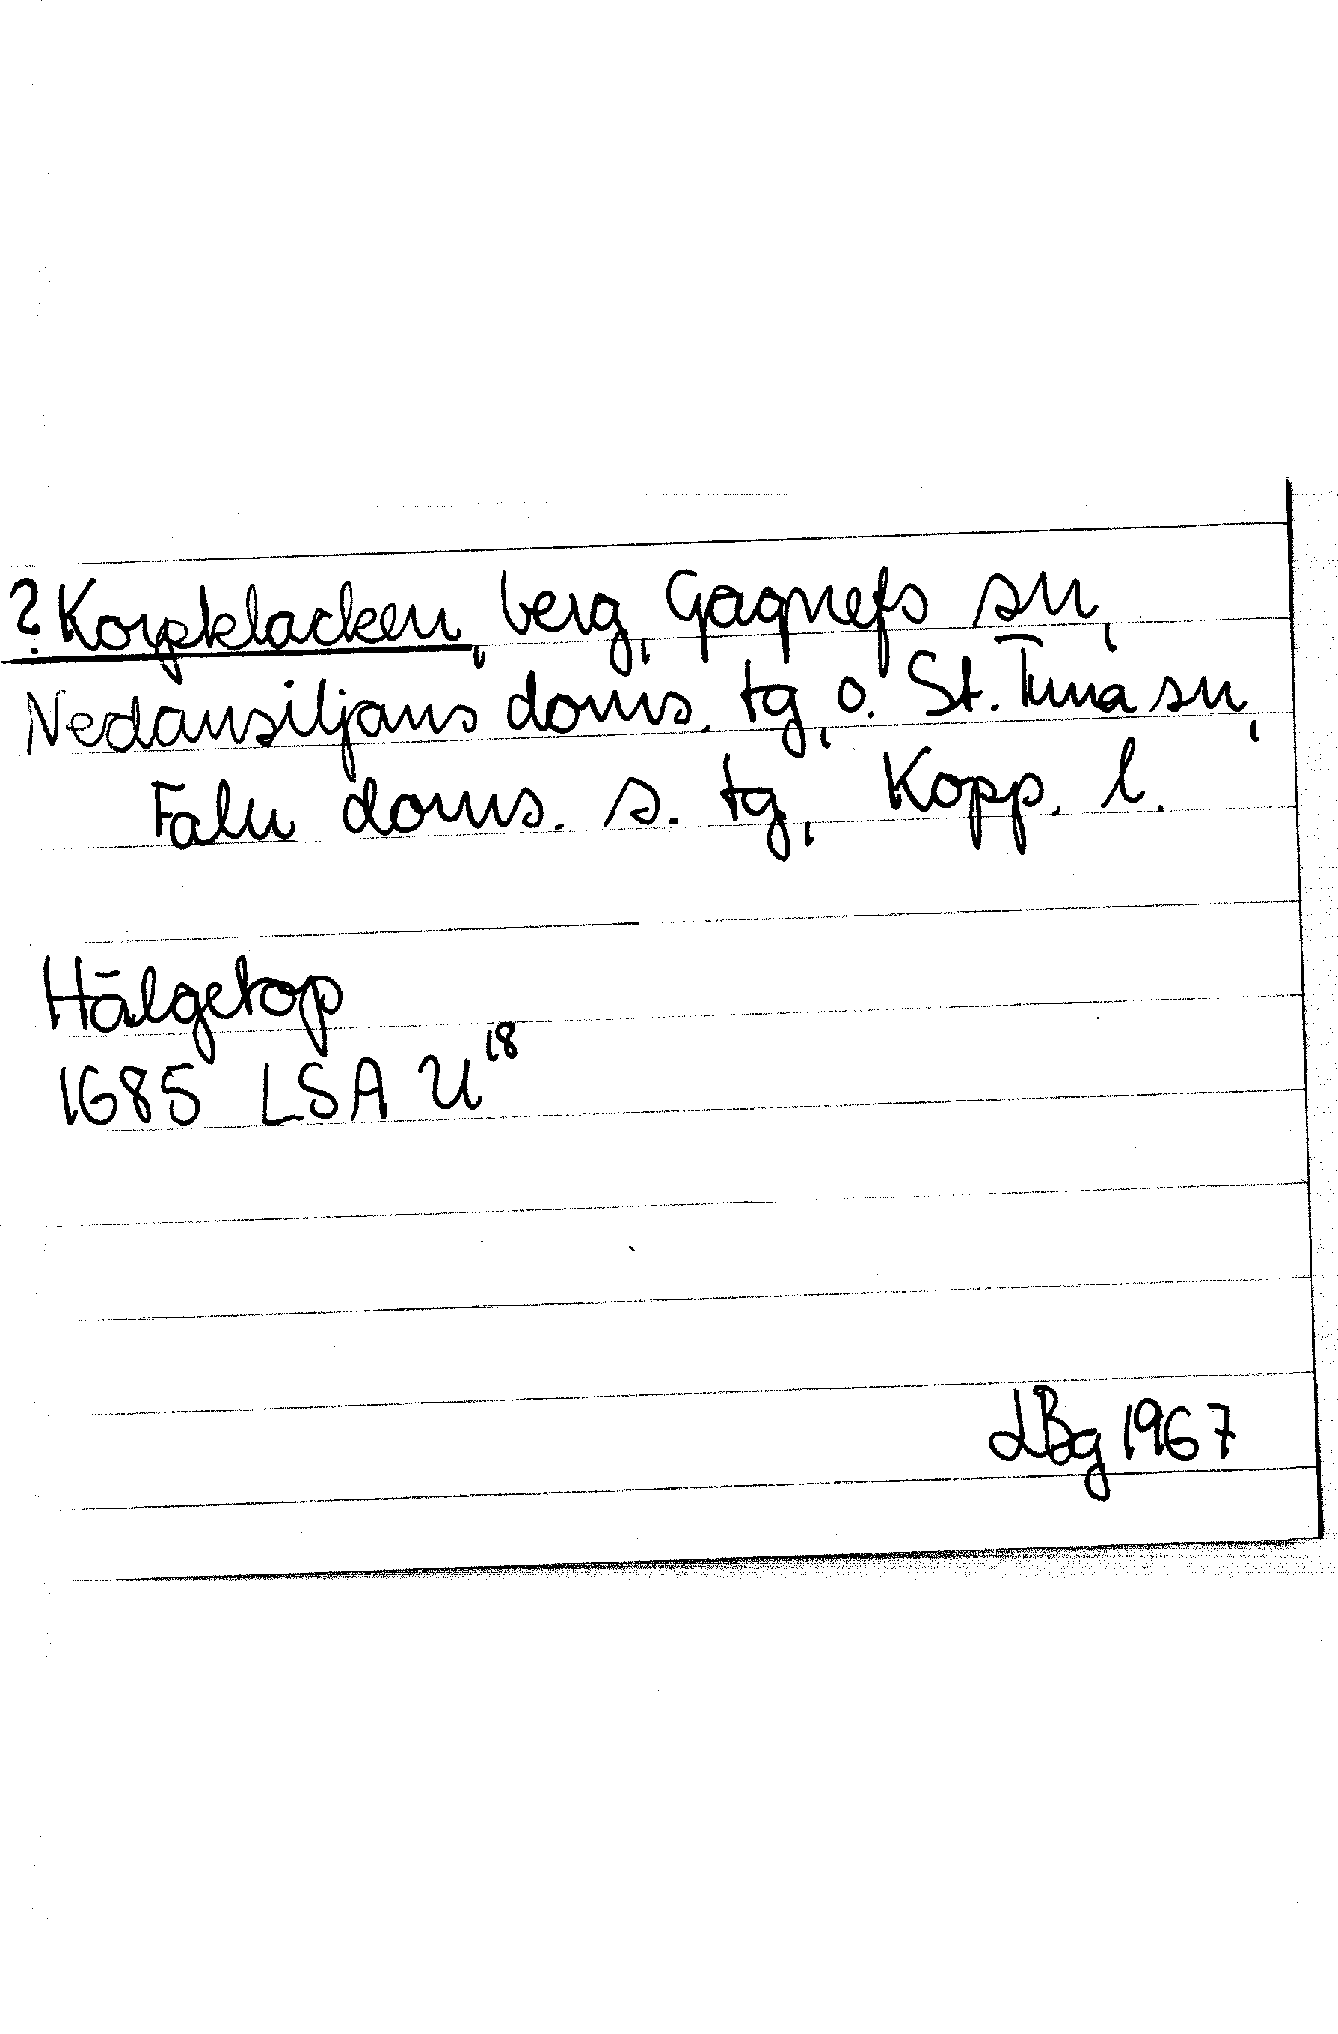 ? Korpklacken, berg, Gagnefs sn,
Nedansiljans doms. tg, o. St. Tuna sn,
Falu doms. s. tg, Kopp. l.
Hälgetop
1685 LSA U18
LBg 1967